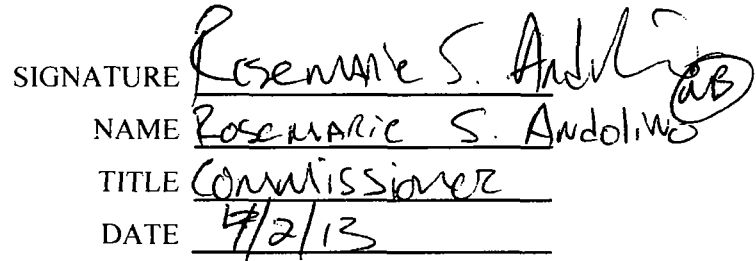 SIGNATURE Rosemarie S. Andol
NAME Rosemarie S. Andolino
TITLE Commissioner
DATE /2/13